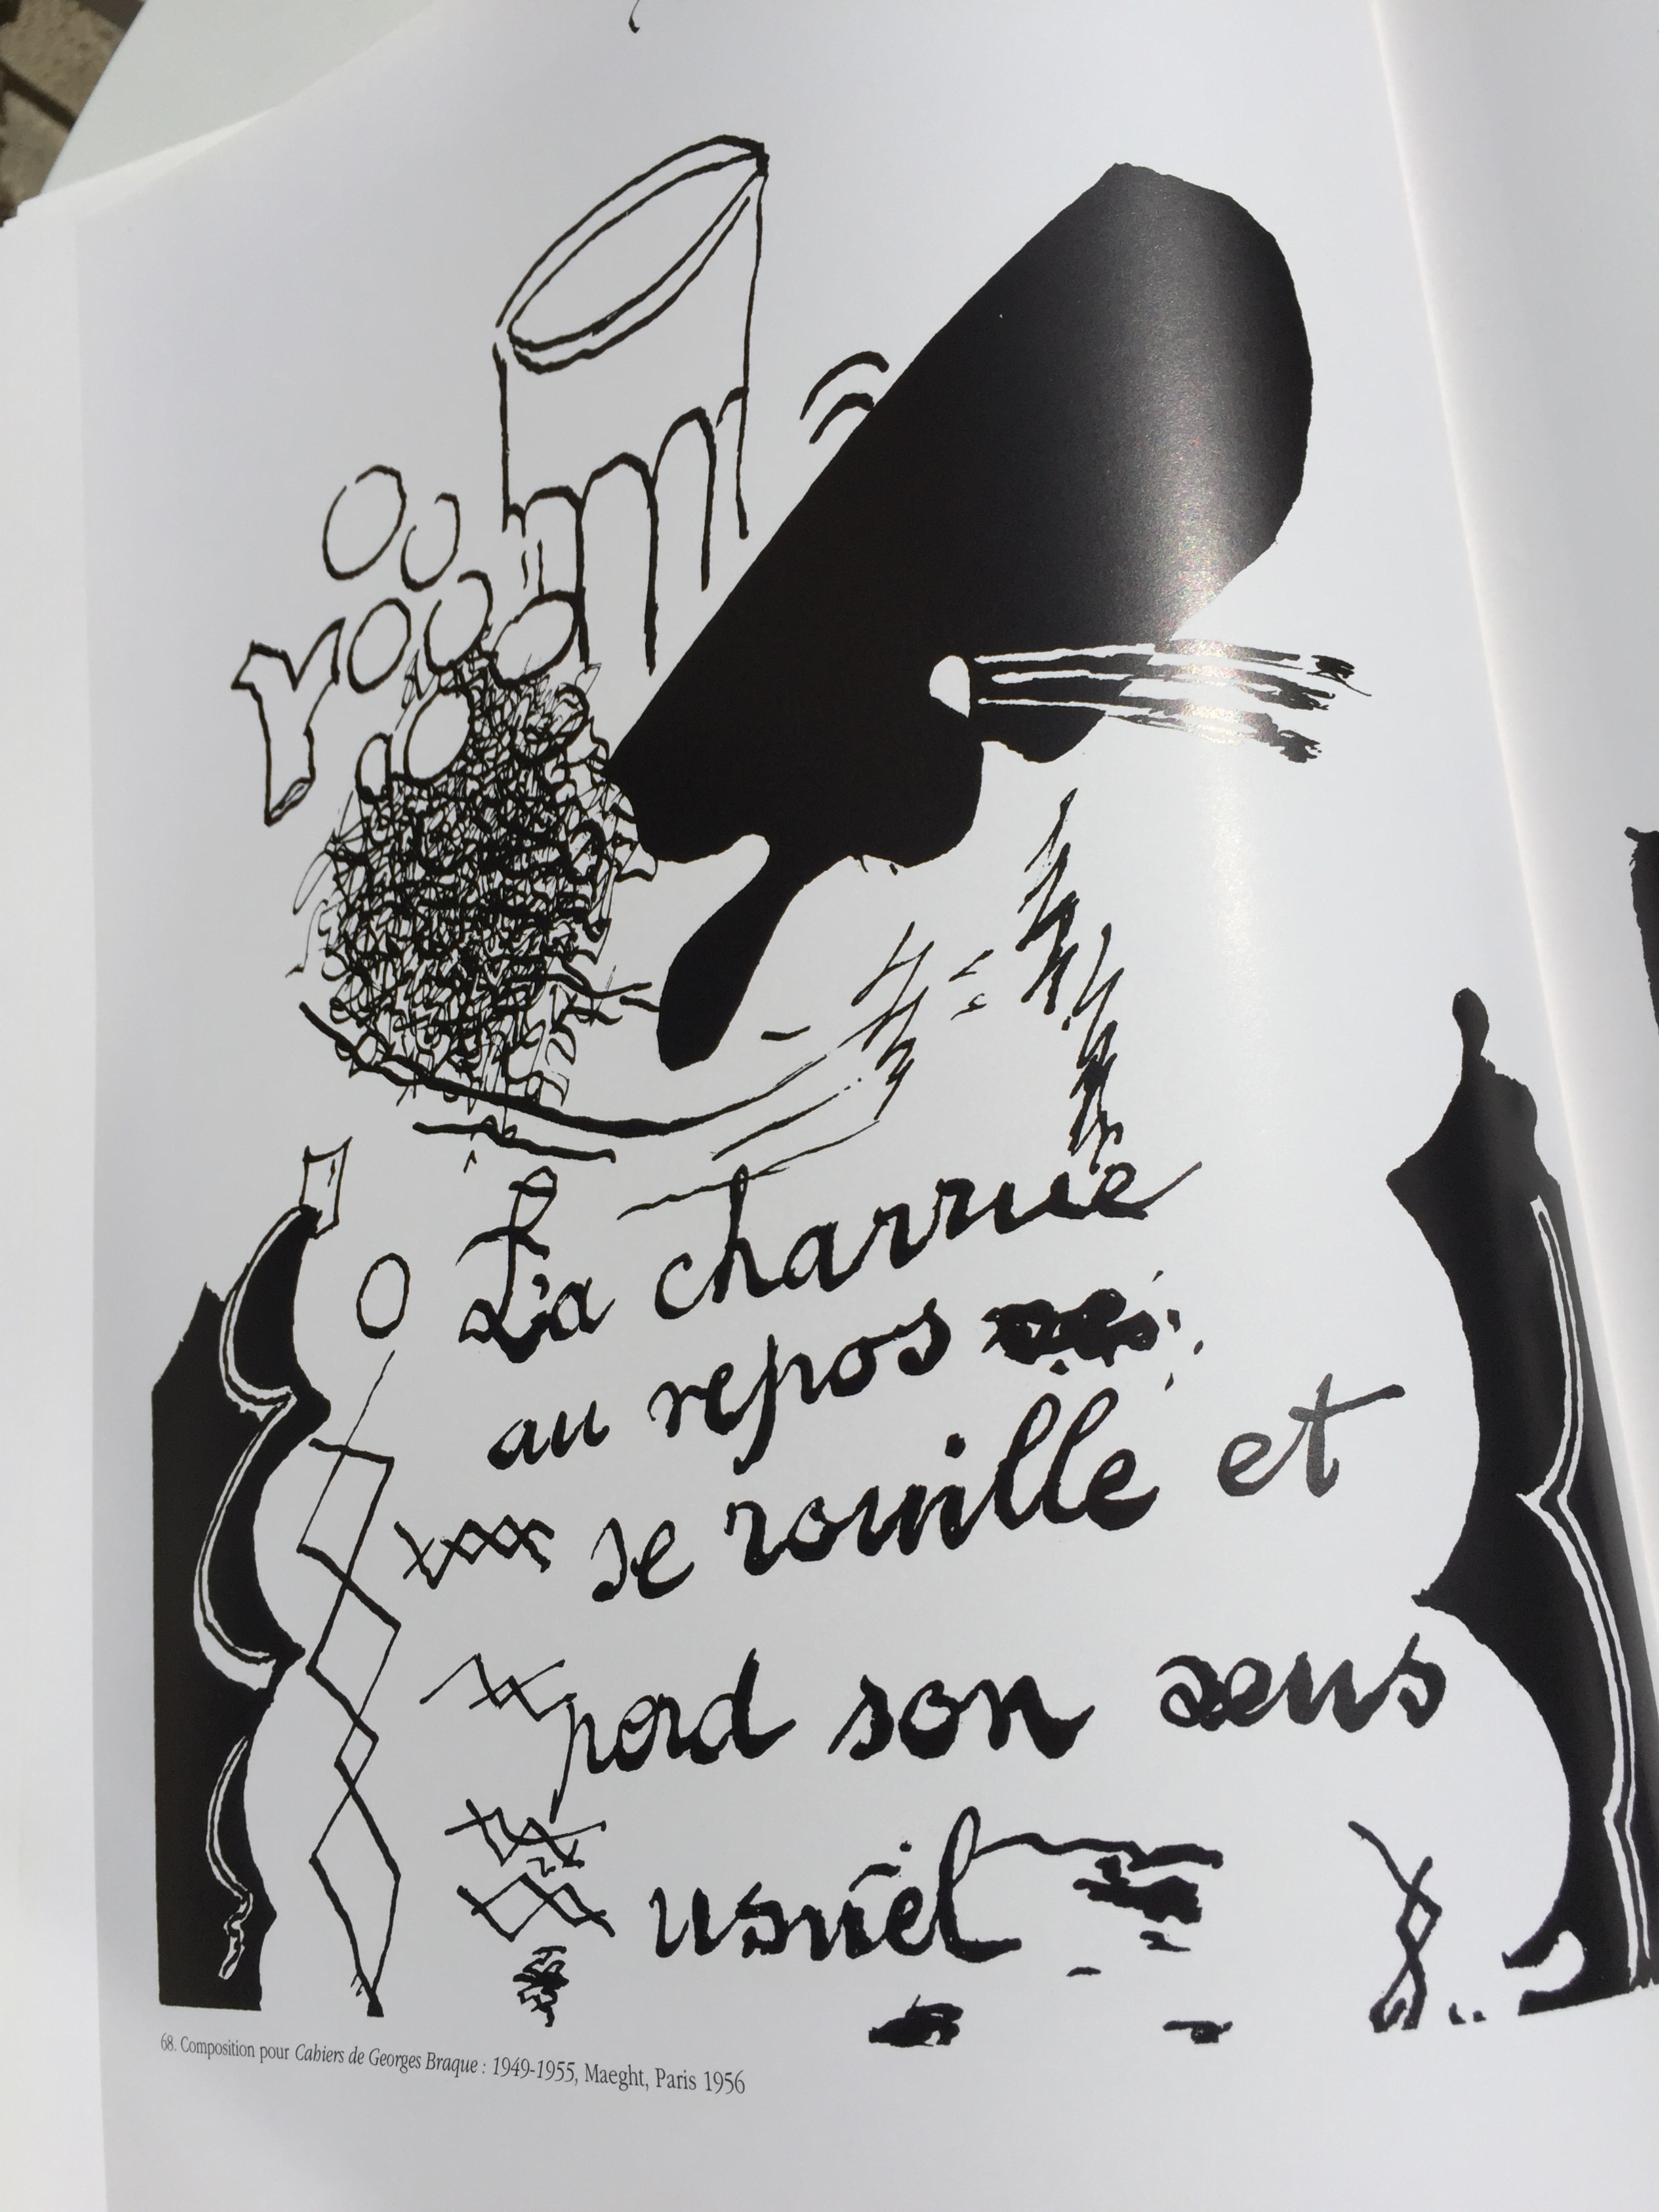 La charrue
au repos
se rouille et
perd son sens
usuel
68. Composition pour Cahiers de Georges Braque : 1949-1955, Maeght, Paris 1956